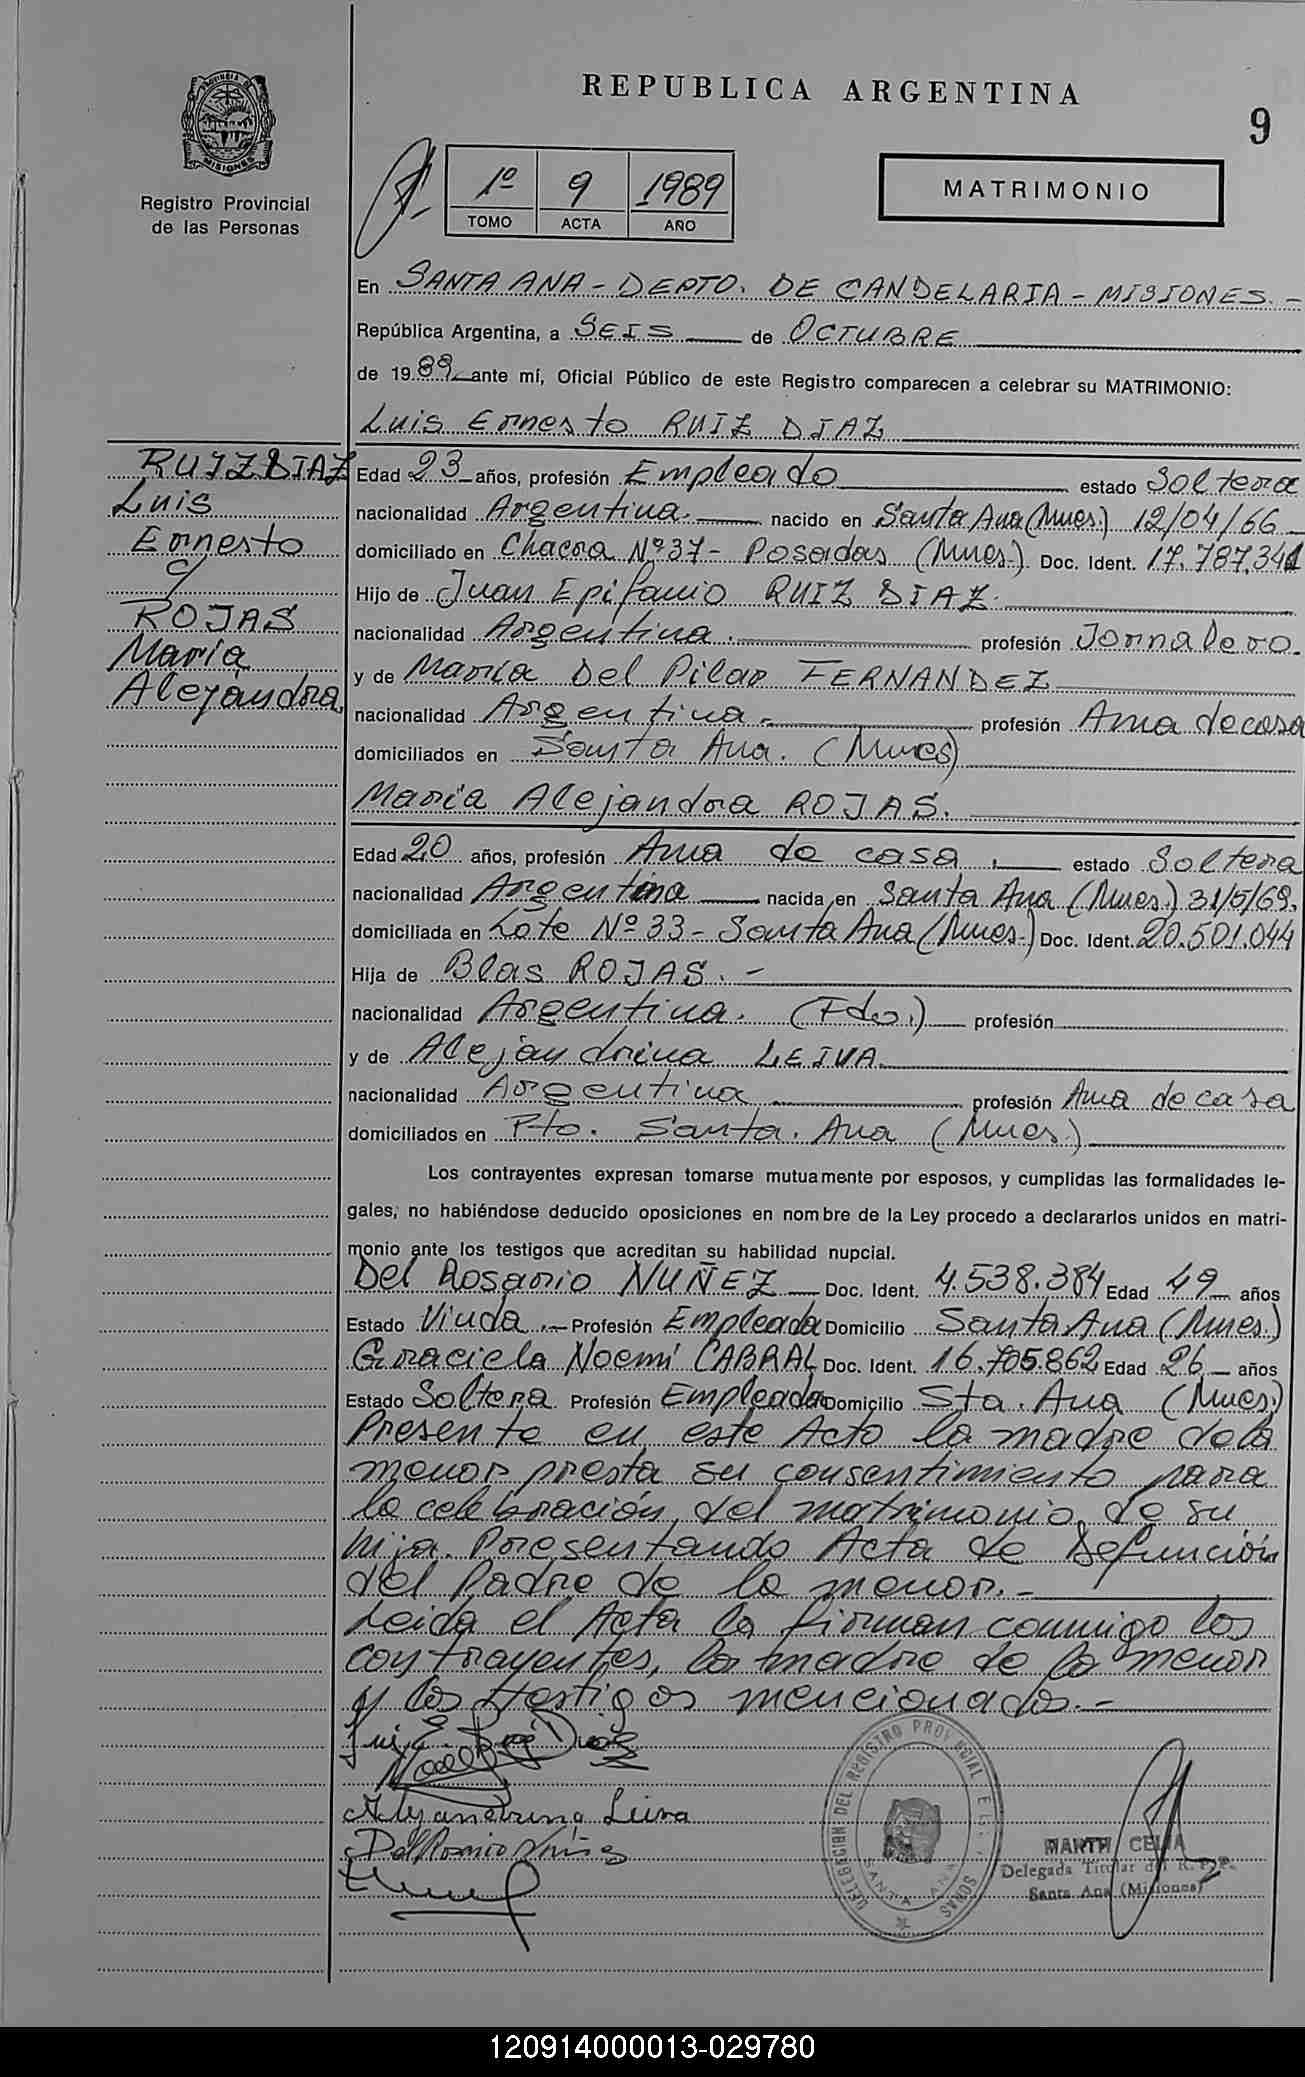 REPUBLICA ARGENTINA
9
PROVINCIA DE
MISIONES
Registro Provincial
de las Personas
1º 9 1989
TOMO ACTA AÑO
MATRIMONIO
En SANTA ANA - DEPTO. DE CANDELARIA - MISIONES. -
República Argentina, a SEIS de OCTUBRE
de 1989 ante mí, Oficial Público de este Registro comparecen a celebrar su MATRIMONIO:
Luis Ernesto RUIZ DIAZ
RUIZ DIAZ
Luis
Ernesto
c/
ROJAS
María
Alejandra
Edad 23 años, profesión Empleado estado Soltera
nacionalidad Argentina. nacido en Santa Ana (Mnes.) 12/04/66
domiciliado en Chacra Nº 37 - Posadas (Mnes.) Doc. Ident. 17.787.341
Hijo de Juan Epifanio RUIZ DIAZ.
nacionalidad Argentina. profesión Jornalero.
y de María Del Pilar FERNANDEZ
nacionalidad Argentina. profesión Ama de casa
domiciliados en Santa Ana. (Mnes)
María Alejandra ROJAS.
Edad 20 años, profesión Ama de casa. estado Soltera
nacionalidad Argentina nacida en Santa Ana (Mnes.) 31/5/69.
domiciliada en Lote Nº 33 - Santa Ana (Mnes.) Doc. Ident. 20.501.044
Hija de Blas ROJAS. -
nacionalidad Argentina. (Fdo.) profesión
y de Alejandrina LEIVA
nacionalidad Argentina profesión Ama de casa
domiciliados en Pto. Santa. Ana (Mnes.)
Los contrayentes expresan tomarse mutuamente por esposos, y cumplidas las formalidades le-
gales, no habiéndose deducido oposiciones en nombre de la Ley procedo a declararlos unidos en matri-
monio ante los testigos que acreditan su habilidad nupcial.
Del Rosario NUÑEZ Doc. Ident. 4.538.384 Edad 49 años
Estado Viuda. Profesión Empleada Domicilio Santa Ana (Mnes.)
Graciela Noemí CABRAL Doc. Ident. 16.705.862 Edad 26 años
Estado Soltera Profesión Empleada Domicilio Sta. Ana (Mnes)
Presente en este Acto la madre de la
menor presta su consentimiento para
la celebración del matrimonio de su
hija. Presentando Acta de Defunción
del Padre de la menor. -
Leida el Acta la firman conmigo los
contrayentes, la madre de la menor
y los testigos mencionados. -
Luis E. Ruiz Diaz
Alejandrina Leiva
Del Rosario Nuñez
DELEGACION DEL REGISTRO PROVINCIAL
SANTA ANA
CELIA
Delegada Titular del R. P. P.
Santa Ana (Misiones)
120914000013-029780